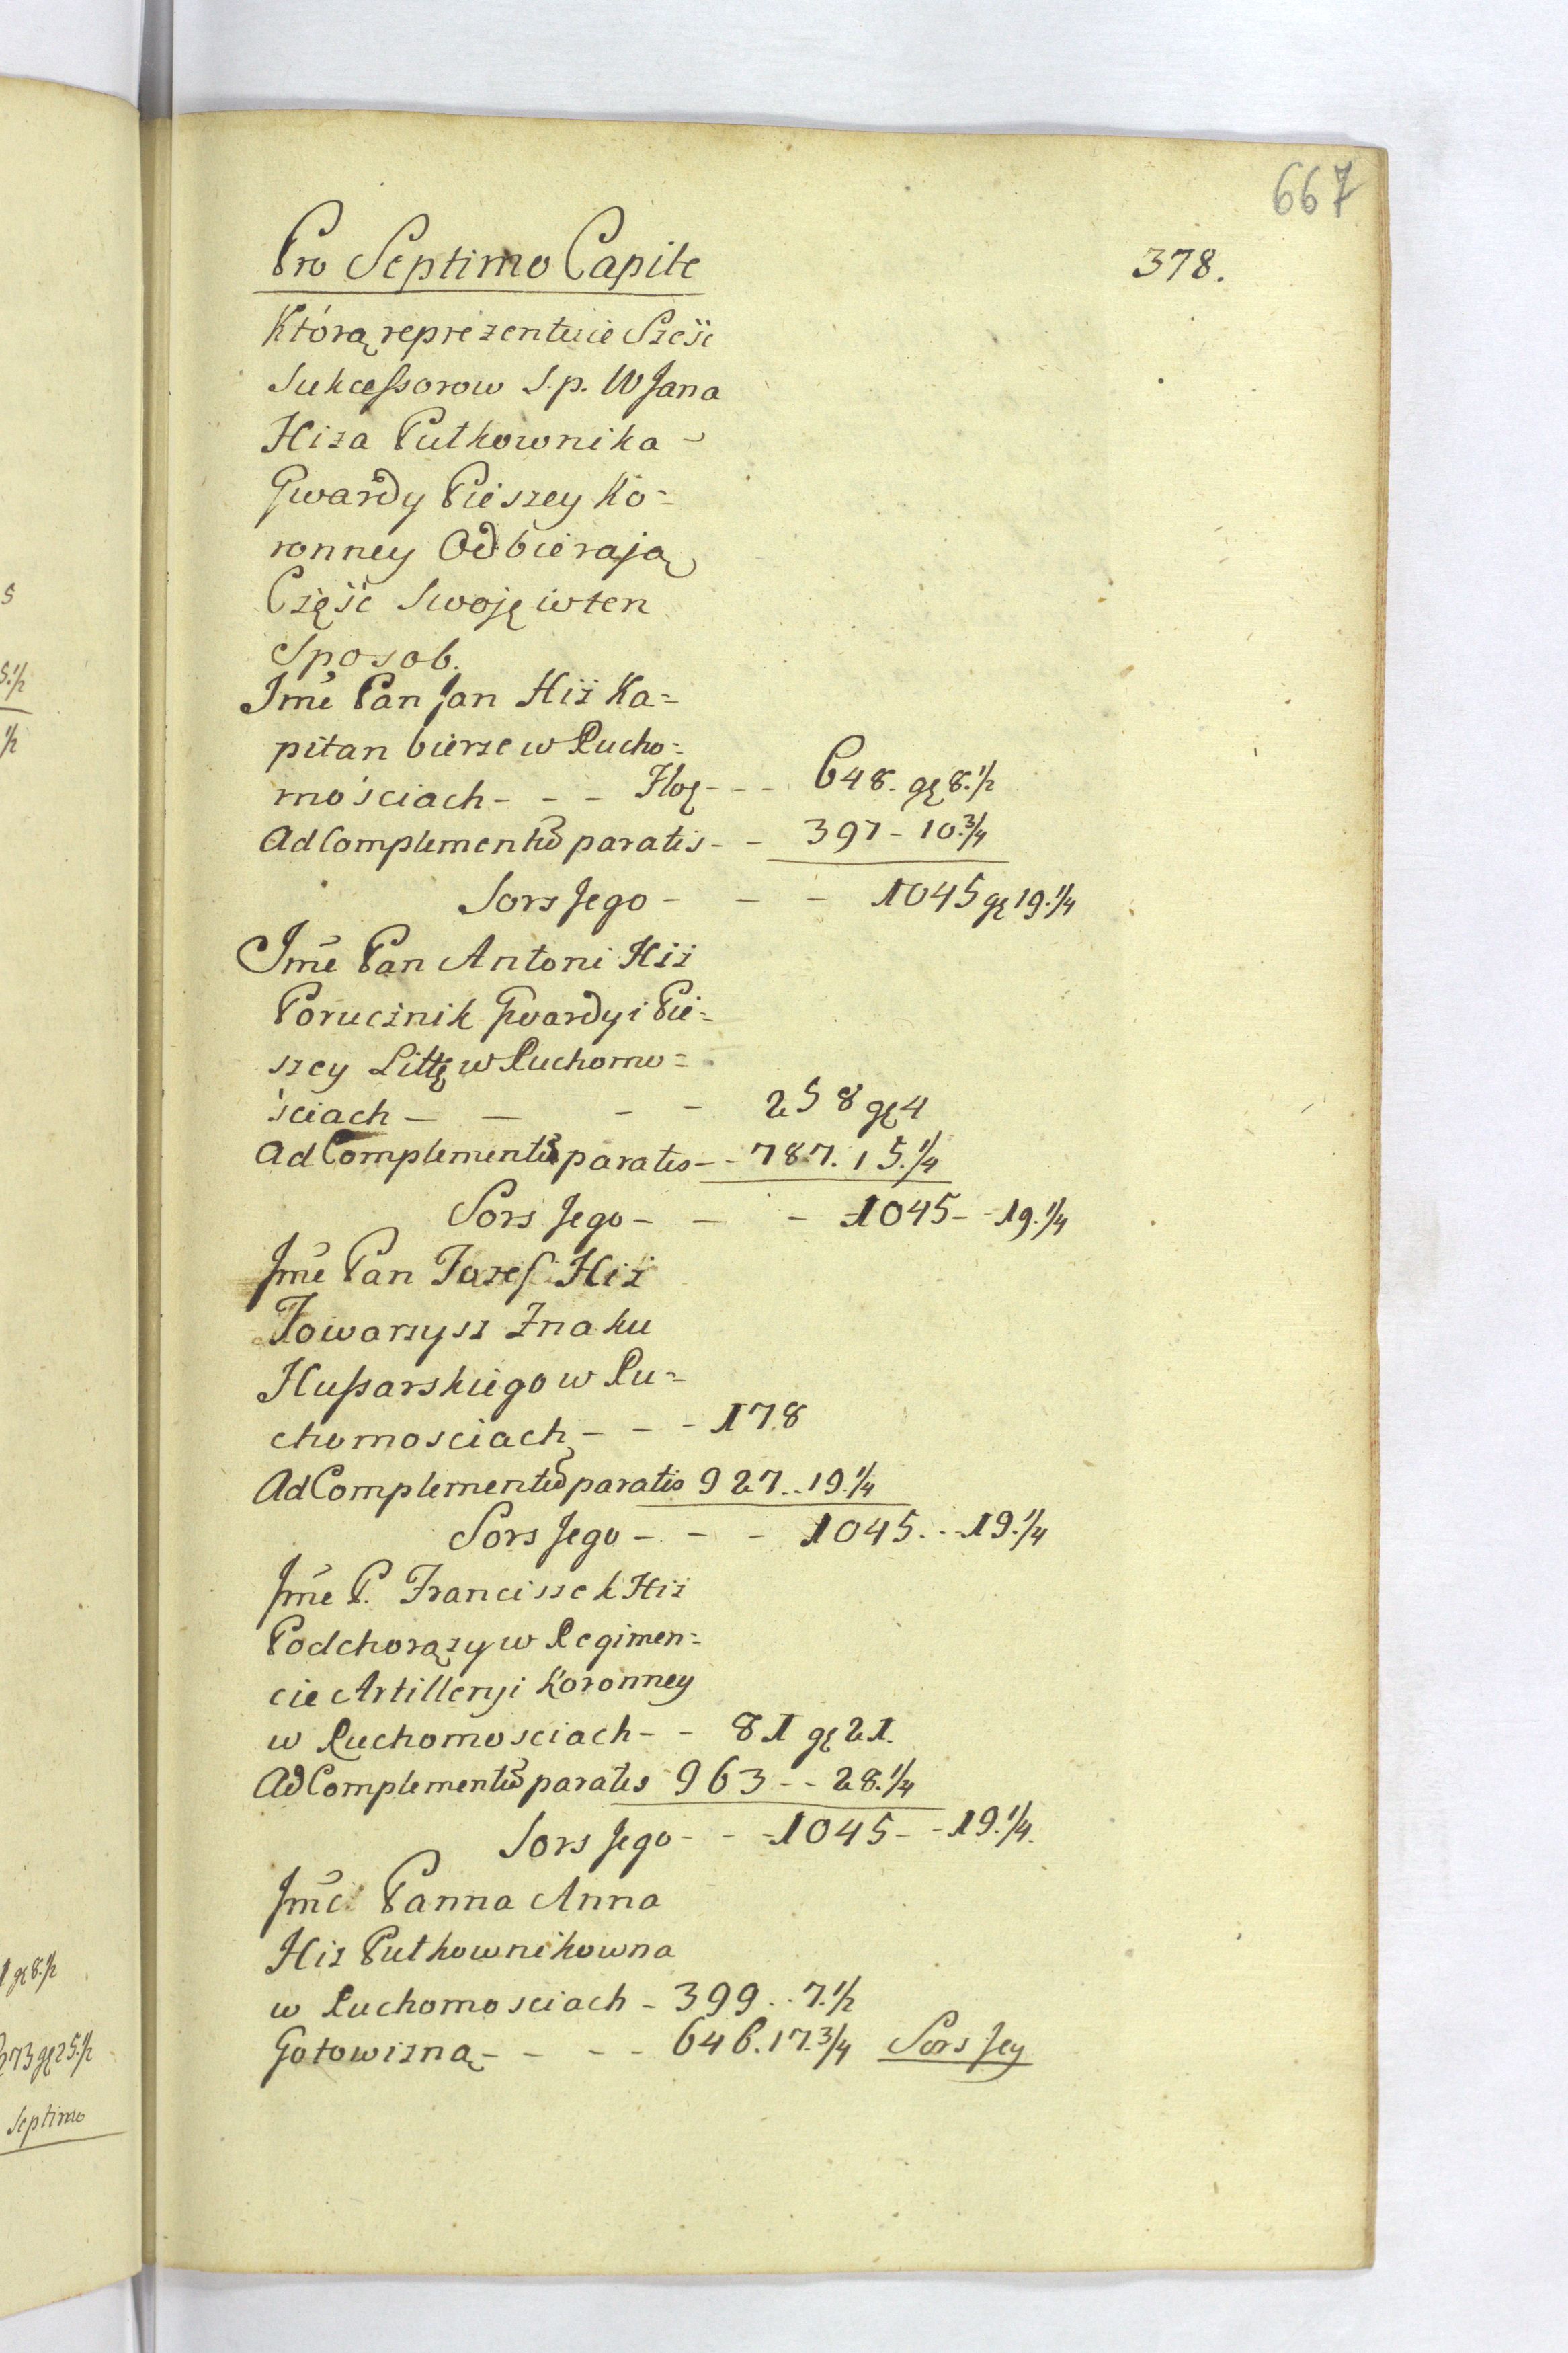 667
378.
Pro Septimo Capite
Którą reprezentuie Sześć
Sukcessorow S.p. W Jana
Hiza Pułkownika
Gwardy Pieszey Ko=
ronney Odbierają
Część Swoję w ten
Sposob.
Jmć Pan Jan Hiż Ka=
pitan bierze w Rucho=
mościach - - - Złoł - - - 648. gł 8.½
Ad Complementũ paratis - - 397 - 10.¾
Sors Jego - - - 1045 gł 19.¼
Jmć Pan Antoni Hiż
Porucznik Gwardyi Pie=
szey Litł w Ruchomo=
ściach - - - - 258 gł 4
Ad Complementũ paratis - - 787. 15.¼
Sors Jego - - - 1045 - - 19.¼
Jmć Pan Jozef Hiż
Towarzysz Znaku
Hussarskiego w Ru=
chomosciach - - - 178
Ad Complementũ paratis 927 .. 19.¼
Sors Jego - - - 1045 . . . 19.¼
Jmć P. Franciszek Hiż
Podchorązy w Regimen=
cie Artilleryi Koronney
w Ruchomosciach - - 81 gł 21.
Ad Complementũ paratis 963 - - 28.¼
Sors Jego - - - 1045 - - 19.¼.
Jmć Panna Anna
Hiz Pułkownikowna
w Ruchomosciach - 399 . . 7.½
Gotowizną - - - - 646. 17.¾ Sors Jey
5
5.½
½
1 gł 8.½
273 gł 25.½
Septimo